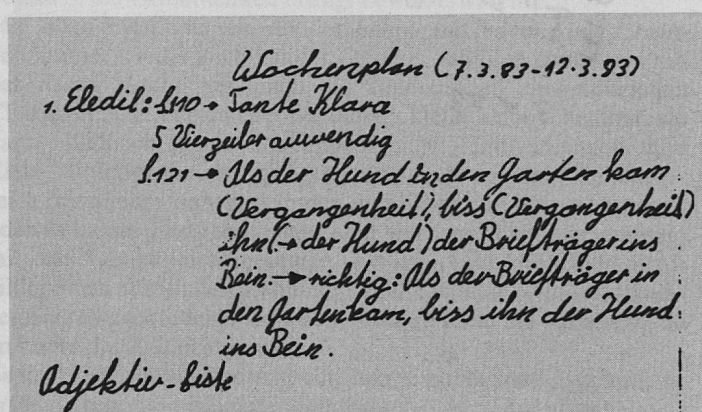 Wochenplan (7.3.83-12.3.93)
1. Eledil: S.110 → Tante Klara
5 Vierzeiler auswendig
S.121 → Als der Hund in den Garten kam
(Vergangenheit), biss (Vergangenheit)
ihn (→ der Hund) der Briefträger ins
Bein. → richtig: Als der Briefträger in
den Garten kam, biss ihn der Hund
ins Bein.
Adjektiv-Liste